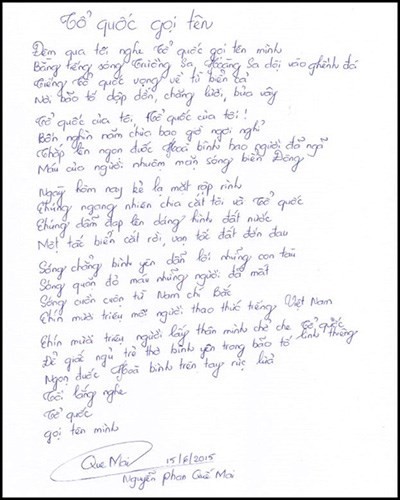 Tổ quốc gọi tên
Đêm qua tôi nghe Tổ quốc gọi tên mình
Bằng tiếng sóng Trường Sa, Hoàng Sa dội vào ghềnh đá
Tiếng Tổ quốc vọng về từ biển cả
Nơi bão tố dập dồn, chăng lưới, bủa vây
Tổ quốc của tôi, Tổ quốc của tôi!
Bốn nghìn năm chưa bao giờ ngơi nghỉ
Thắp lên ngọn đuốc Hoà bình bao người đã ngã
Máu của người nhuộm mặn sóng biển Đông
Ngày hôm nay kẻ lạ mặt rập rình
Chúng ngang nhiên chia cắt tôi và Tổ quốc
Chúng dẫm đạp lên dáng hình đất nước
Một tấc biển cắt rời, vạn tấc đất đớn đau
Sóng chẳng bình yên dẫn lối những con tàu
Sóng quặn đỏ máu những người đã mất
Sóng cuồn cuộn từ Nam chí Bắc
Chín mươi triệu môi người thao thức tiếng Việt Nam
Chín mươi triệu người lấy thân mình chở che Tổ quốc linh thiêng
Để giấc ngủ trẻ thơ bình yên trong bão tố
Ngọn đuốc Hoà bình trên tay rực lửa
Tôi lắng nghe
Tổ quốc
gọi tên mình
Quế Mai 15/6/2015
Nguyễn Phan Quế Mai